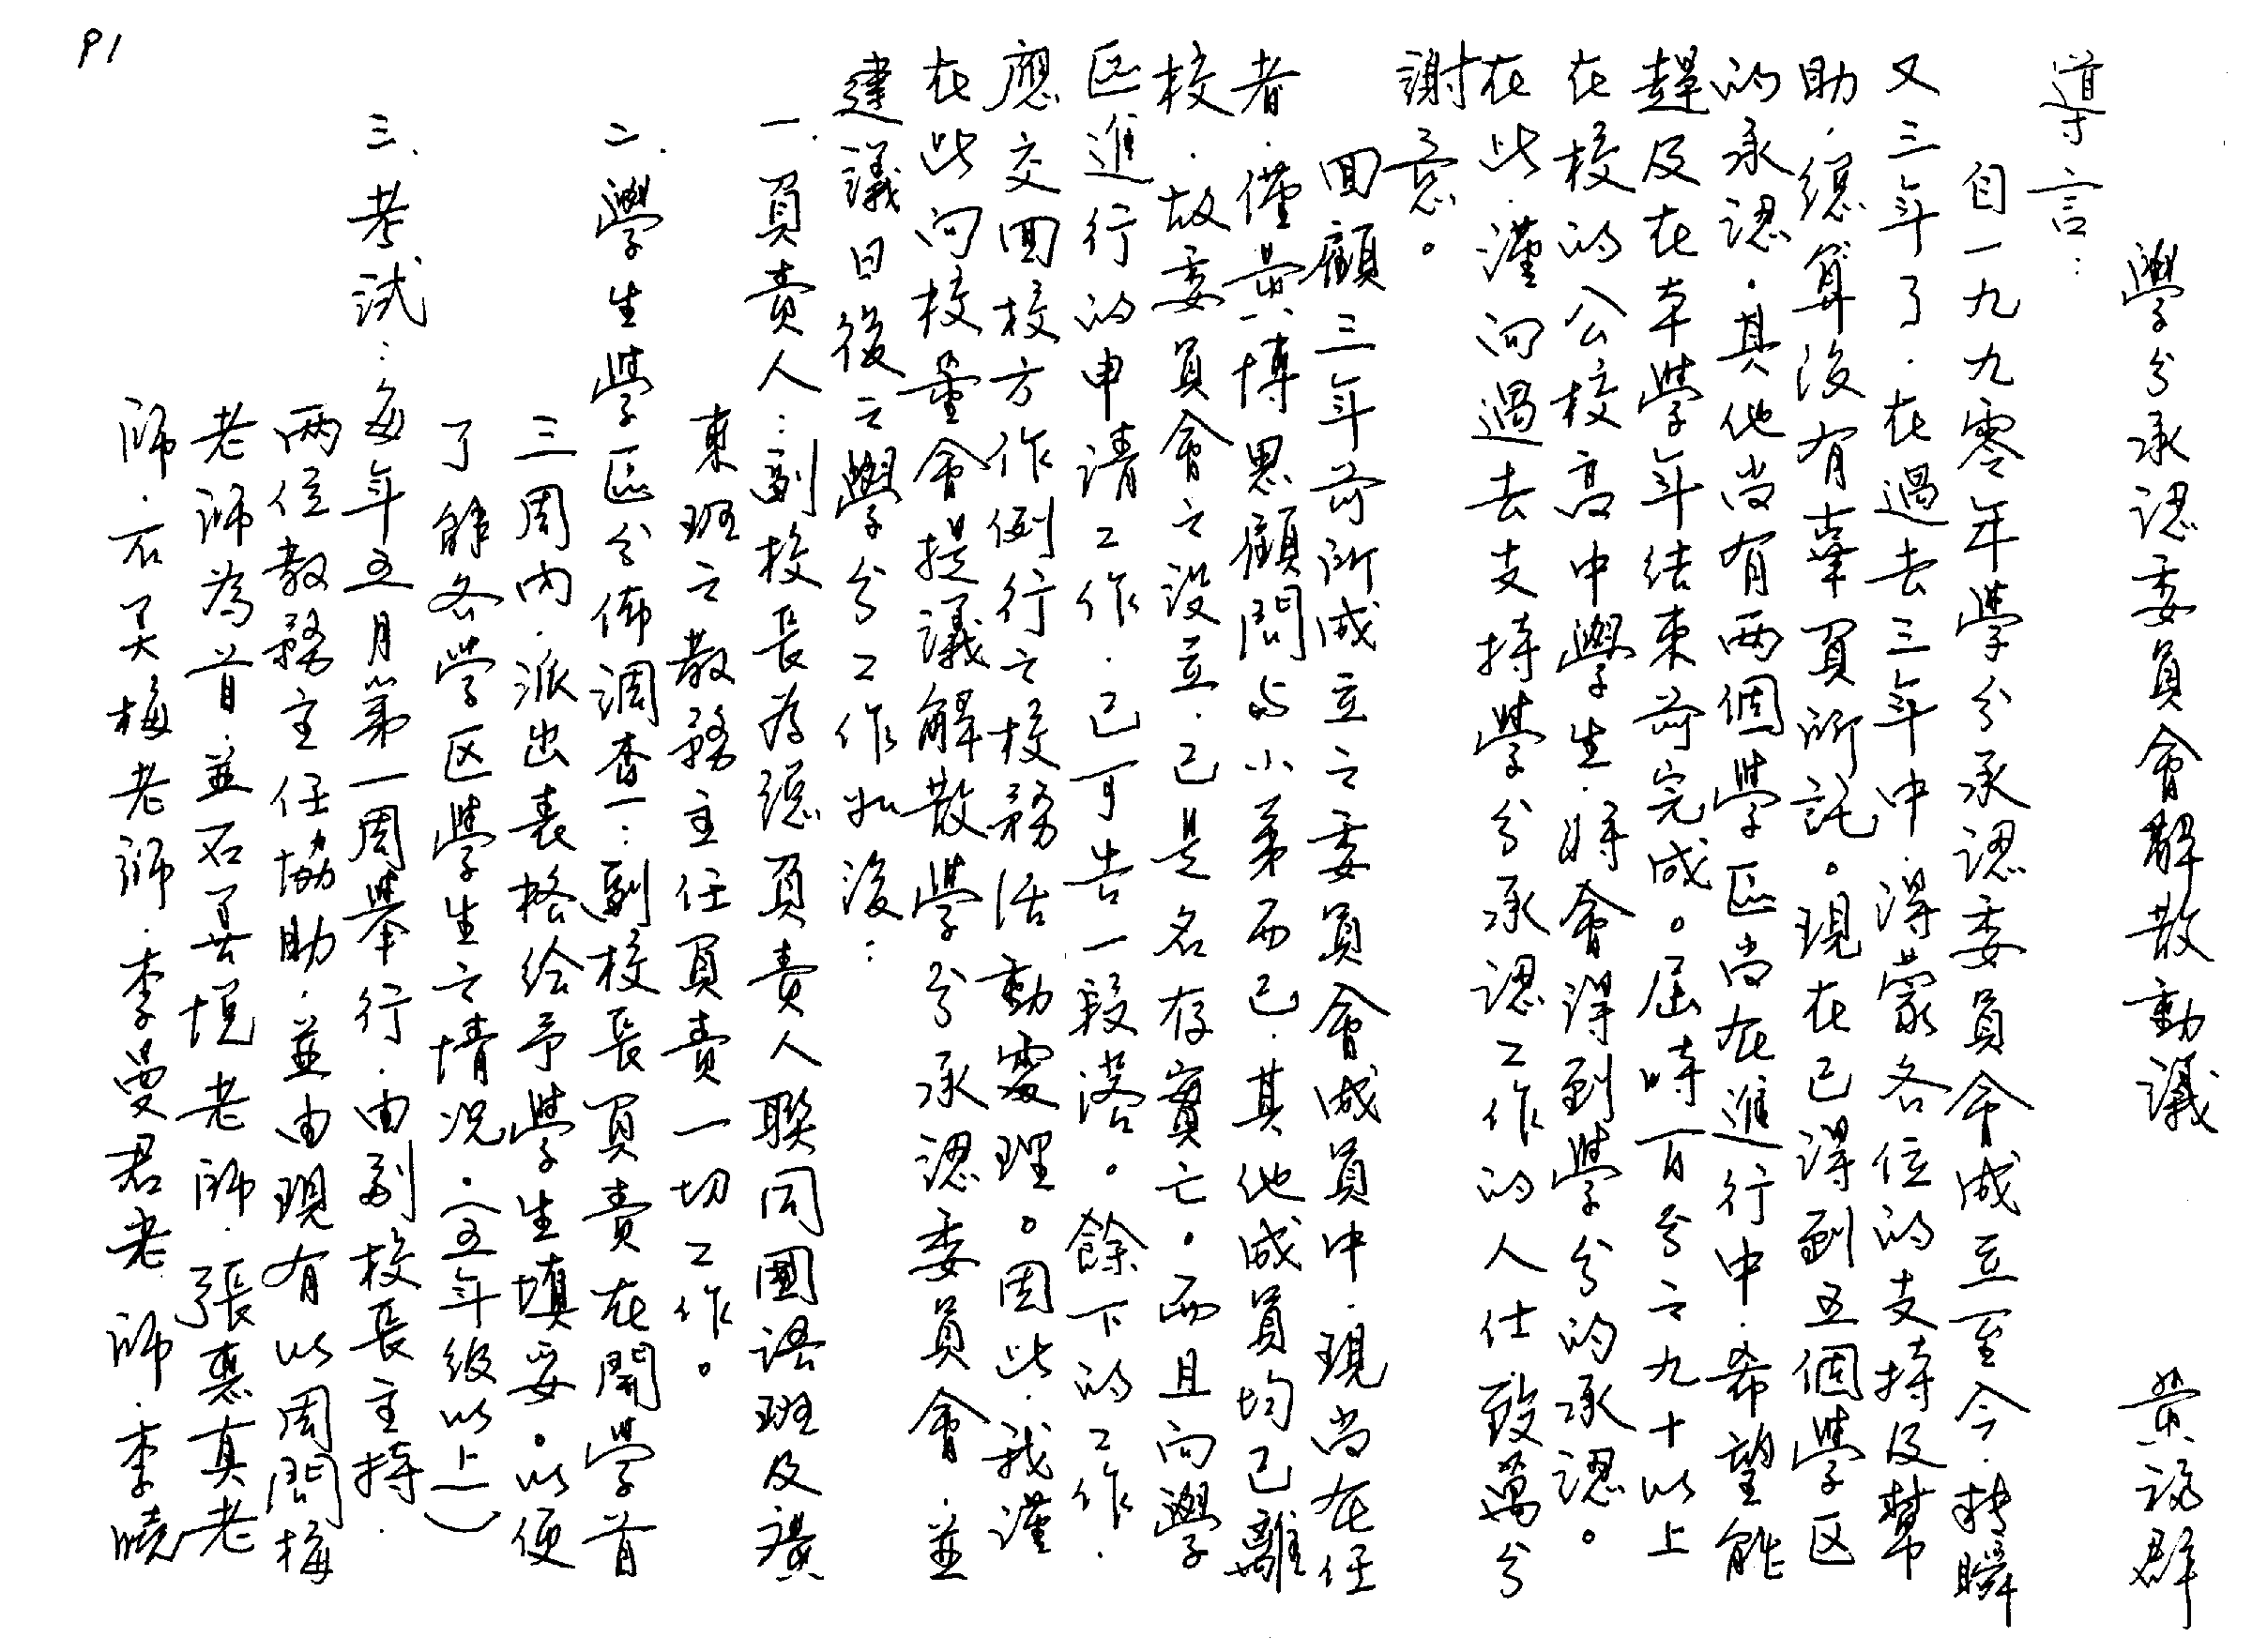 學分承認委員會解散動議 黃福群
導言：
自一九九零年学分承認委員會成立至今．轉瞬
又三年了．在過去三年中．得蒙各位的支持及幫
助．總算没有辜負所託。現在已得到五個學区
的承認。其他尚有两個學區尚在進行中．希望能
趕及在本學年结束前完成。屆時百分之九十以上
在校的公校高中學生．將會得到學分的承認。
在此．谨向過去支持學分承認工作的人仕致萬分
謝意。
回顧三年前所成立之委員會成員中．現尚在任
者．僅黄博思顧問与小弟而已．其他成員均已離
校．故委員會之設立．已是名存實亡。而且向學
区進行的申請工作．已可告一段落。餘下的工作．
應交回校方作例行之校務活動處理。因此．我谨
在此向校董會提議解散學分承認委員會．並
建議日後之學分工作如後：
一．負責人：副校長為總負責人聯同國語班及廣
東班之教務主任負責一切工作。
二．學生學區分佈調查一：副校長負責在開学首
三周内．派出表格给予學生填妥。以便
了解各学区學生之情况．（五年级以上）
三．考試：每年五月第一周舉行．由副校長主持．
两位教務主任協助．並由現有以周閏梅
老師為首．並石景境老師．張惠真老
師．石美梅老師．李曼君老師．李曉
P1